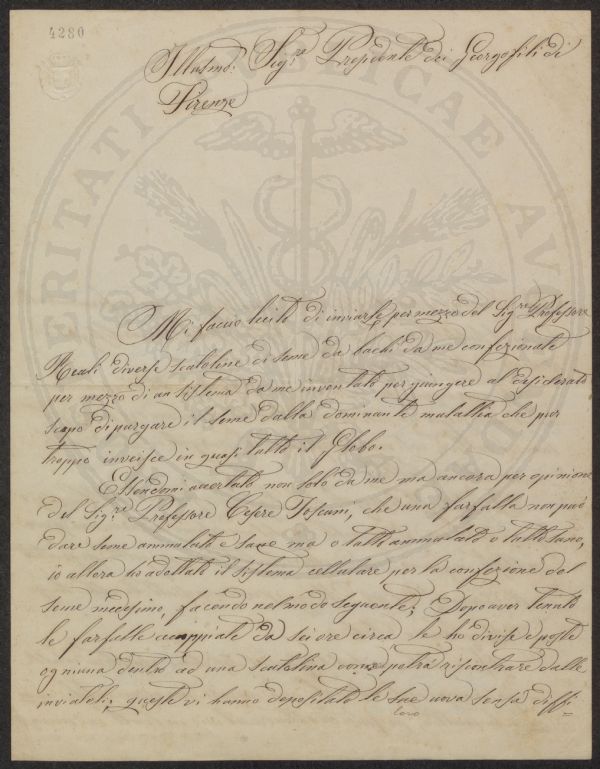 4280
Illustmo: Sig:re Presidente dei Georgofili di
Firenze
Mi faccio lecito di inviarle per mezzo del Sig:re Professore
diverse scatoline di seme da bachi da me confezionate
per mezzo di un sistema da me inventato per giungere al desiderato
scopo di purgare il seme dalla dominante malattia che pur
troppo inveisce in quasi tutto il Globo.
Essendomi accertato non solo da me ma ancora per opinione
del Sig:re Professore Cesere Toscani, che una farfalla non può
dare seme ammalato e sano ma o tutto ammalato o tutto sano,
io allora ho adottato il sistema cellulare per la confezione del
seme medesimo, facendo nel modo seguente; Dopo aver tenuto
le farfalle accoppiate da sei ore circa le ho divise e poste
ogniuna dentro ad una scatolina come potrà riscontrare dalle
inviatoli; queste vi hanno depositato le sue uova senza diffi=
loro
VERITATI
PUBLICAE